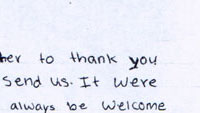 her to thank you
send us. It were
always be welcome